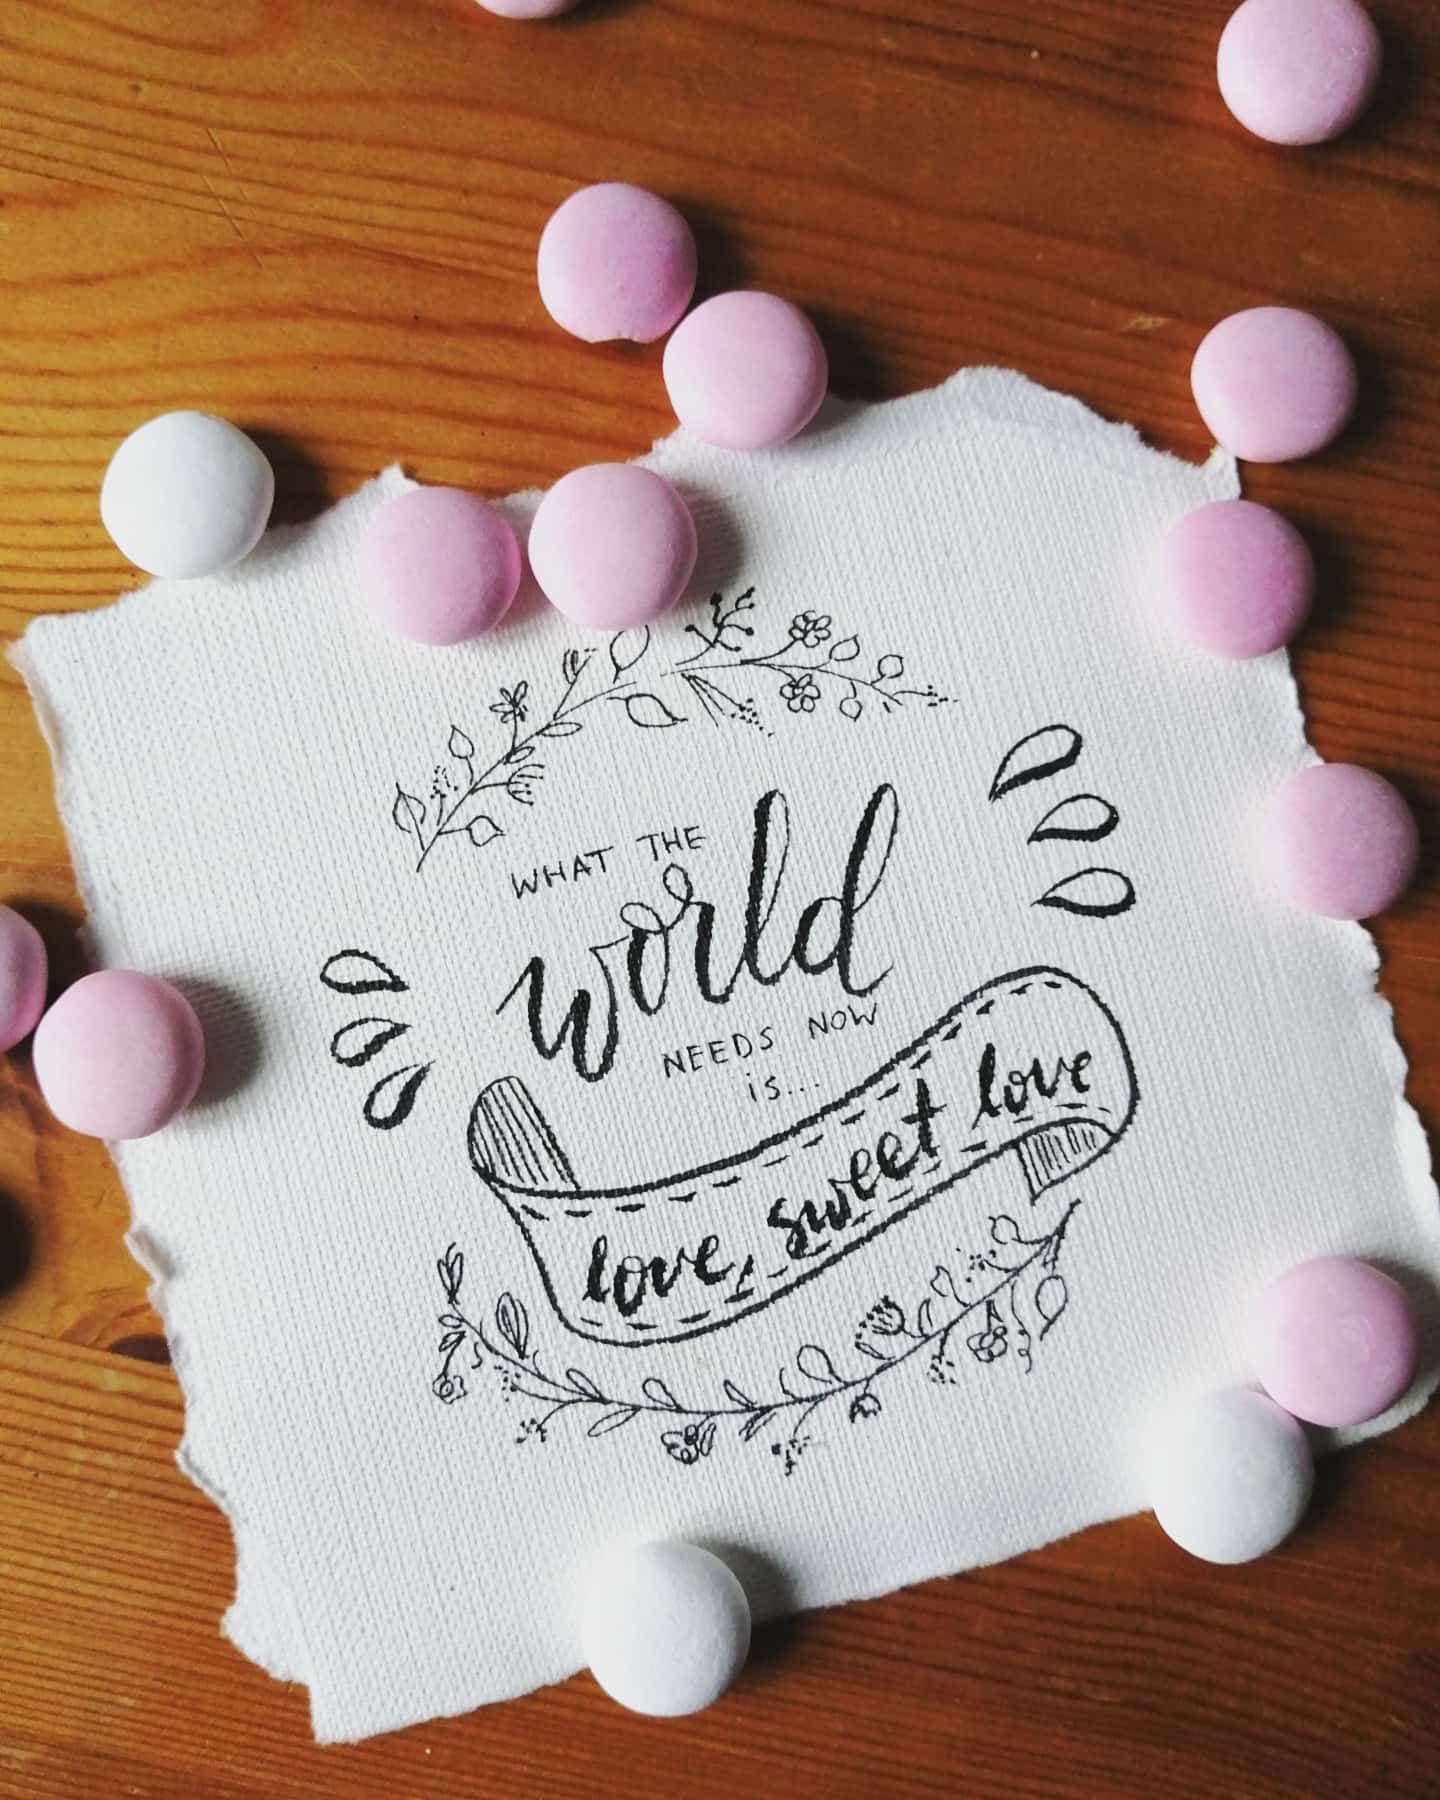 WHAT THE
world
NEEDS NOW
is...
love, sweet love